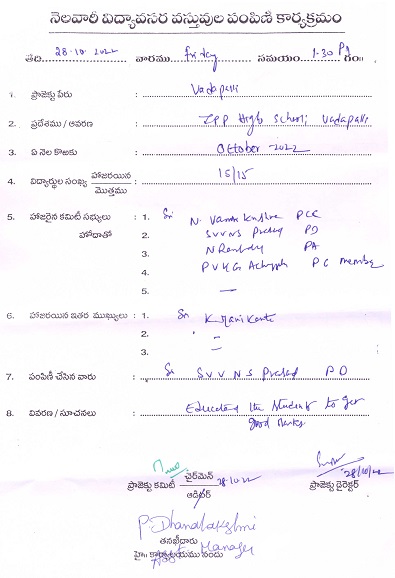 నెలవారీ విద్యావసర వస్తువుల పంపిణి కార్యక్రమం
తేది 28.10.2022 వారము friday సమయం 1-30 గం॥
1. ప్రాజెక్టు పేరు : Vadapalli
2. ప్రదేశము / ఆవరణ : ZPP High School Vadapalli
3. ఏ నెల కొఱకు : October 2022
4. విద్యార్థుల సంఖ్య హాజరయిన / మొత్తము : 15/15
5. హాజరైన కమిటీ సభ్యులు : 1. Sri N. Vamsi Krishna PCC
హోదాతో 2. SVVNS Prasad PD
3. N Rambabu PA
4. P V K G PC member
5. —
6. హాజరయిన ఇతర ముఖ్యులు : 1. Sri K. Mani Kanta
2. —
3. —
7. పంపిణీ చేసిన వారు : Sri S V V N S Prasad P D
8. వివరణ / సూచనలు : Educated the Student to get
good Marks.
ప్రాజెక్టు కమిటీ చైర్‌మెన్ 28.10.22 28/10/22
ఆడిటర్ ప్రాజెక్టు డైరెక్టర్
P. Dhanalakshmi
తనఖీదారు
Manager
హై॥ కార్యాలయము నందు